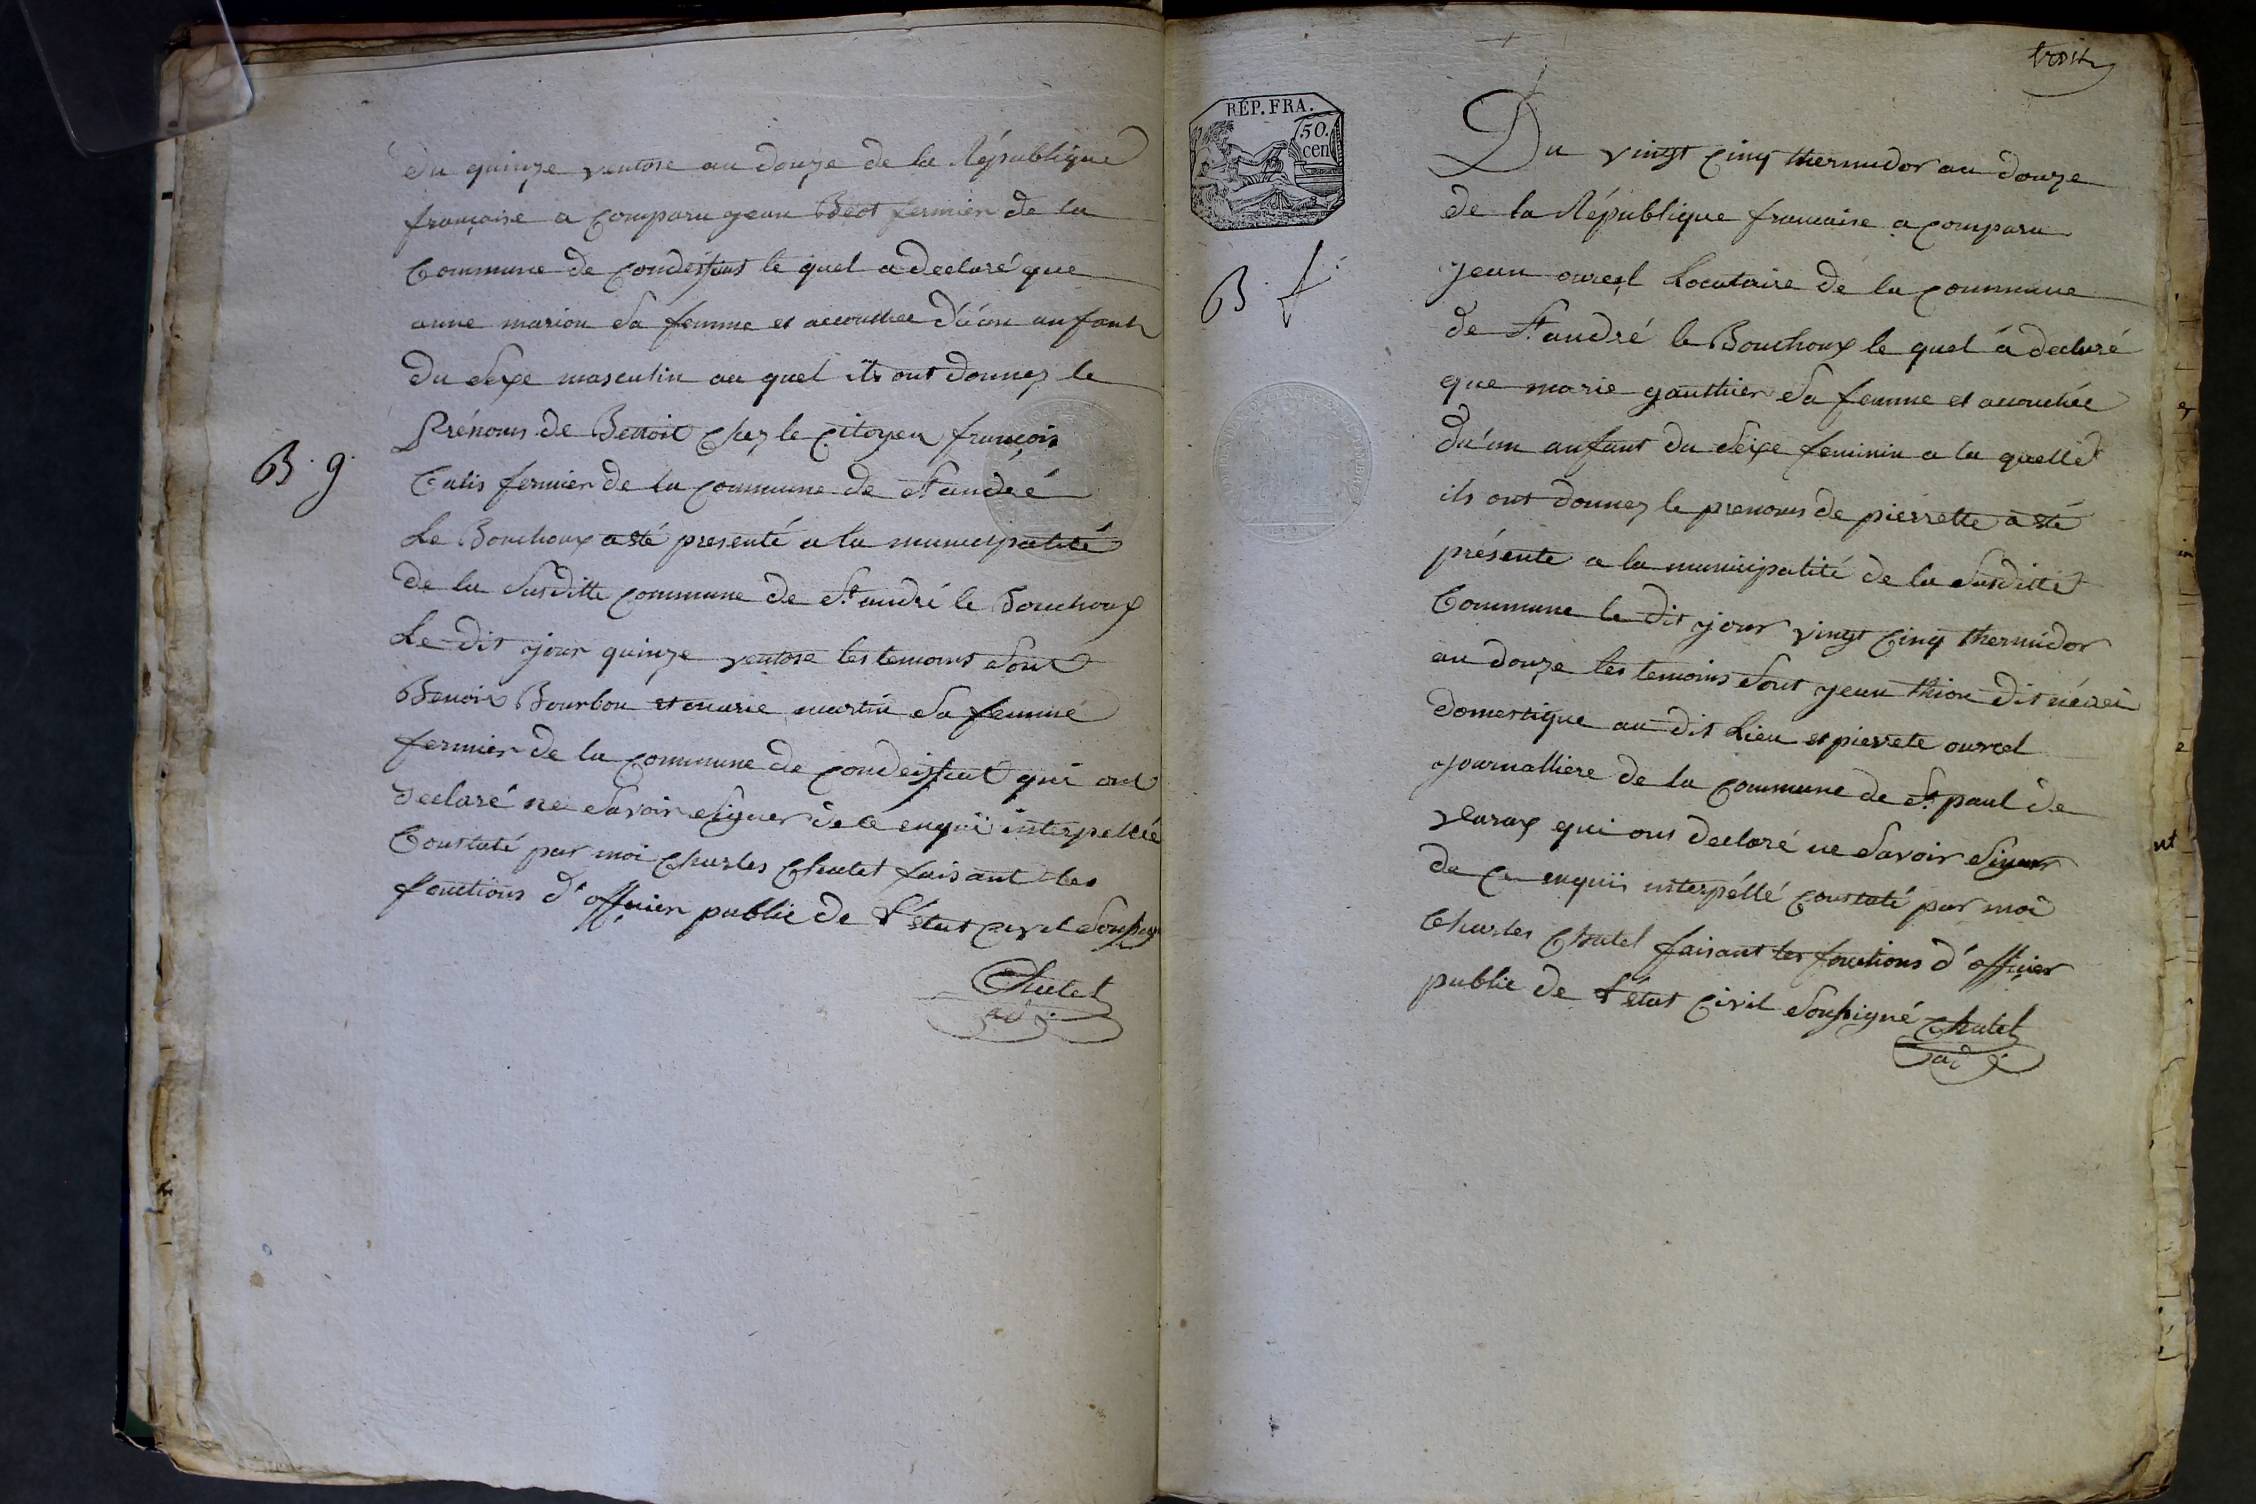 Du quinze ventose an douze de la République
française a comparu jean Beot fermier de la
Commune de Condeissiat le quel a declaré que
anne marion sa femme et accouchee d'un anfant
du sexe masculin au quel ils ont donnez le
Prénoms de Benoit chez le citoyen françois
fermier de la commune de St andré
Le Bouchoux a été presenté a la municipalité
de la susditte commune de St andré le Bouchoux
Le dit jour quinze ventose les temoins sont
Benoit Bourbon et marie martin sa femme
fermier de la commune de condeissiat qui ont
declaré ne savoir signer de ce enquii interpellée
Constaté par moi Charles Chatel faisant les
fonctions d'officier public de l'état civil
Chatel
adj.
B. g.
trois
REP. FRA.
50.
cen
B. f.
Du vingt cinq thermidor an douze
de la République francaise a comparu
jean ourcel Locataire de la commune
de St andré le Bouchoux le quel à declaré
que marie gauthier sa femme et accouchée
du'un anfant du seixe feminin a la quelle
ils ont donnez le prenoms de pierrette a été
présente a la municipalité de la susditte
Commune le dit jour vingt cinq thermidor
an douze les temoins sont jean thion dit
domestique au dit Lieu et pierrete ourcel
journalliere de la commune de St paul de
varax qui ont declaré ne savoir signer
de ce enquii interpéllé constaté par moi
Charles Chatel faisant les fonctions d'officier
public de l'état civil soussigné Chatel
adj.